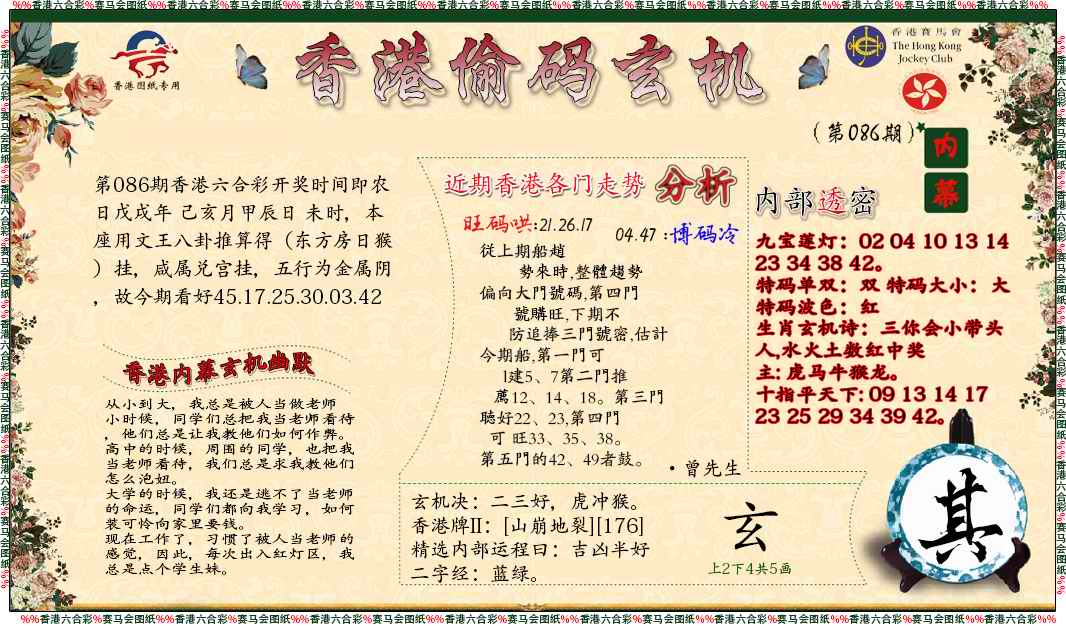 %%香港六合彩%赛马会图纸%%香港六合彩%赛马会图纸%%香港六合彩%赛马会图纸%%香港六合彩%赛马会图纸%%香港六合彩%赛马会图纸%%香港六合彩%赛马会图纸%%香港六合彩%赛马会图纸%%香港六合彩%%
香港图纸专用
香港偷码玄机
香港賽馬會
The Hong Kong
Jockey Club
(第086期)
内
幕
第086期香港六合彩开奖时间即农
日戊戌年 己亥月甲辰日 未时，本
座用文王八卦推算得（东方房日猴
）挂，咸属兑宫挂，五行为金属阴
，故今期看好45.17.25.30.03.42
香港内幕玄机幽默
从小到大，我总是被人当做老师
小时候，同学们总把我当老师看待
，他们总是让我教他们如何作弊。
高中的时候，周围的同学，也把我
当老师看待，我们总是求我教他们
怎么泡妞。
大学的时候，我还是逃不了当老师
的命运，同学们都向我学习，如何
装可怜向家里要钱。
现在工作了，习惯了被人当老师的
感觉，因此，每次出入红灯区，我
总是点个学生妹。
近期香港各门走势 分析
旺码哄:21.26.17
04.47 :博码冷
從上期船趙
勢來時,整體趨勢
偏向大門號碼,第四門
號購旺,下期不
防追捧三門號密,估計
今期船,第一門可
l建5、7第二門推
薦12、14、18。第三門
聴好22、23,第四門
可 旺33、35、38。
第五門的42、49者鼓。
·曾先生
内部透密
九宝莲灯：02 04 10 13 14
23 34 38 42。
特码单双：双 特码大小：大
特码波色：红
生肖玄机诗：三你会小带头
人,水火土数红中奖
主: 虎马牛猴龙。
十指平天下: 09 13 14 17
23 25 29 34 39 42。
玄机决：二三好，虎冲猴。
香港牌II：[山崩地裂][176]
精选内部运程曰：吉凶半好
二字经：蓝绿。
玄
上2下4共5画
其
%%香港六合彩%赛马会图纸%%香港六合彩%赛马会图纸%%香港六合彩%赛马会图纸%%香港六合彩%赛马会图纸%%香港六合彩%赛马会图纸%%香港六合彩%赛马会图纸%%香港六合彩%赛马会图纸%%香港六合彩%%